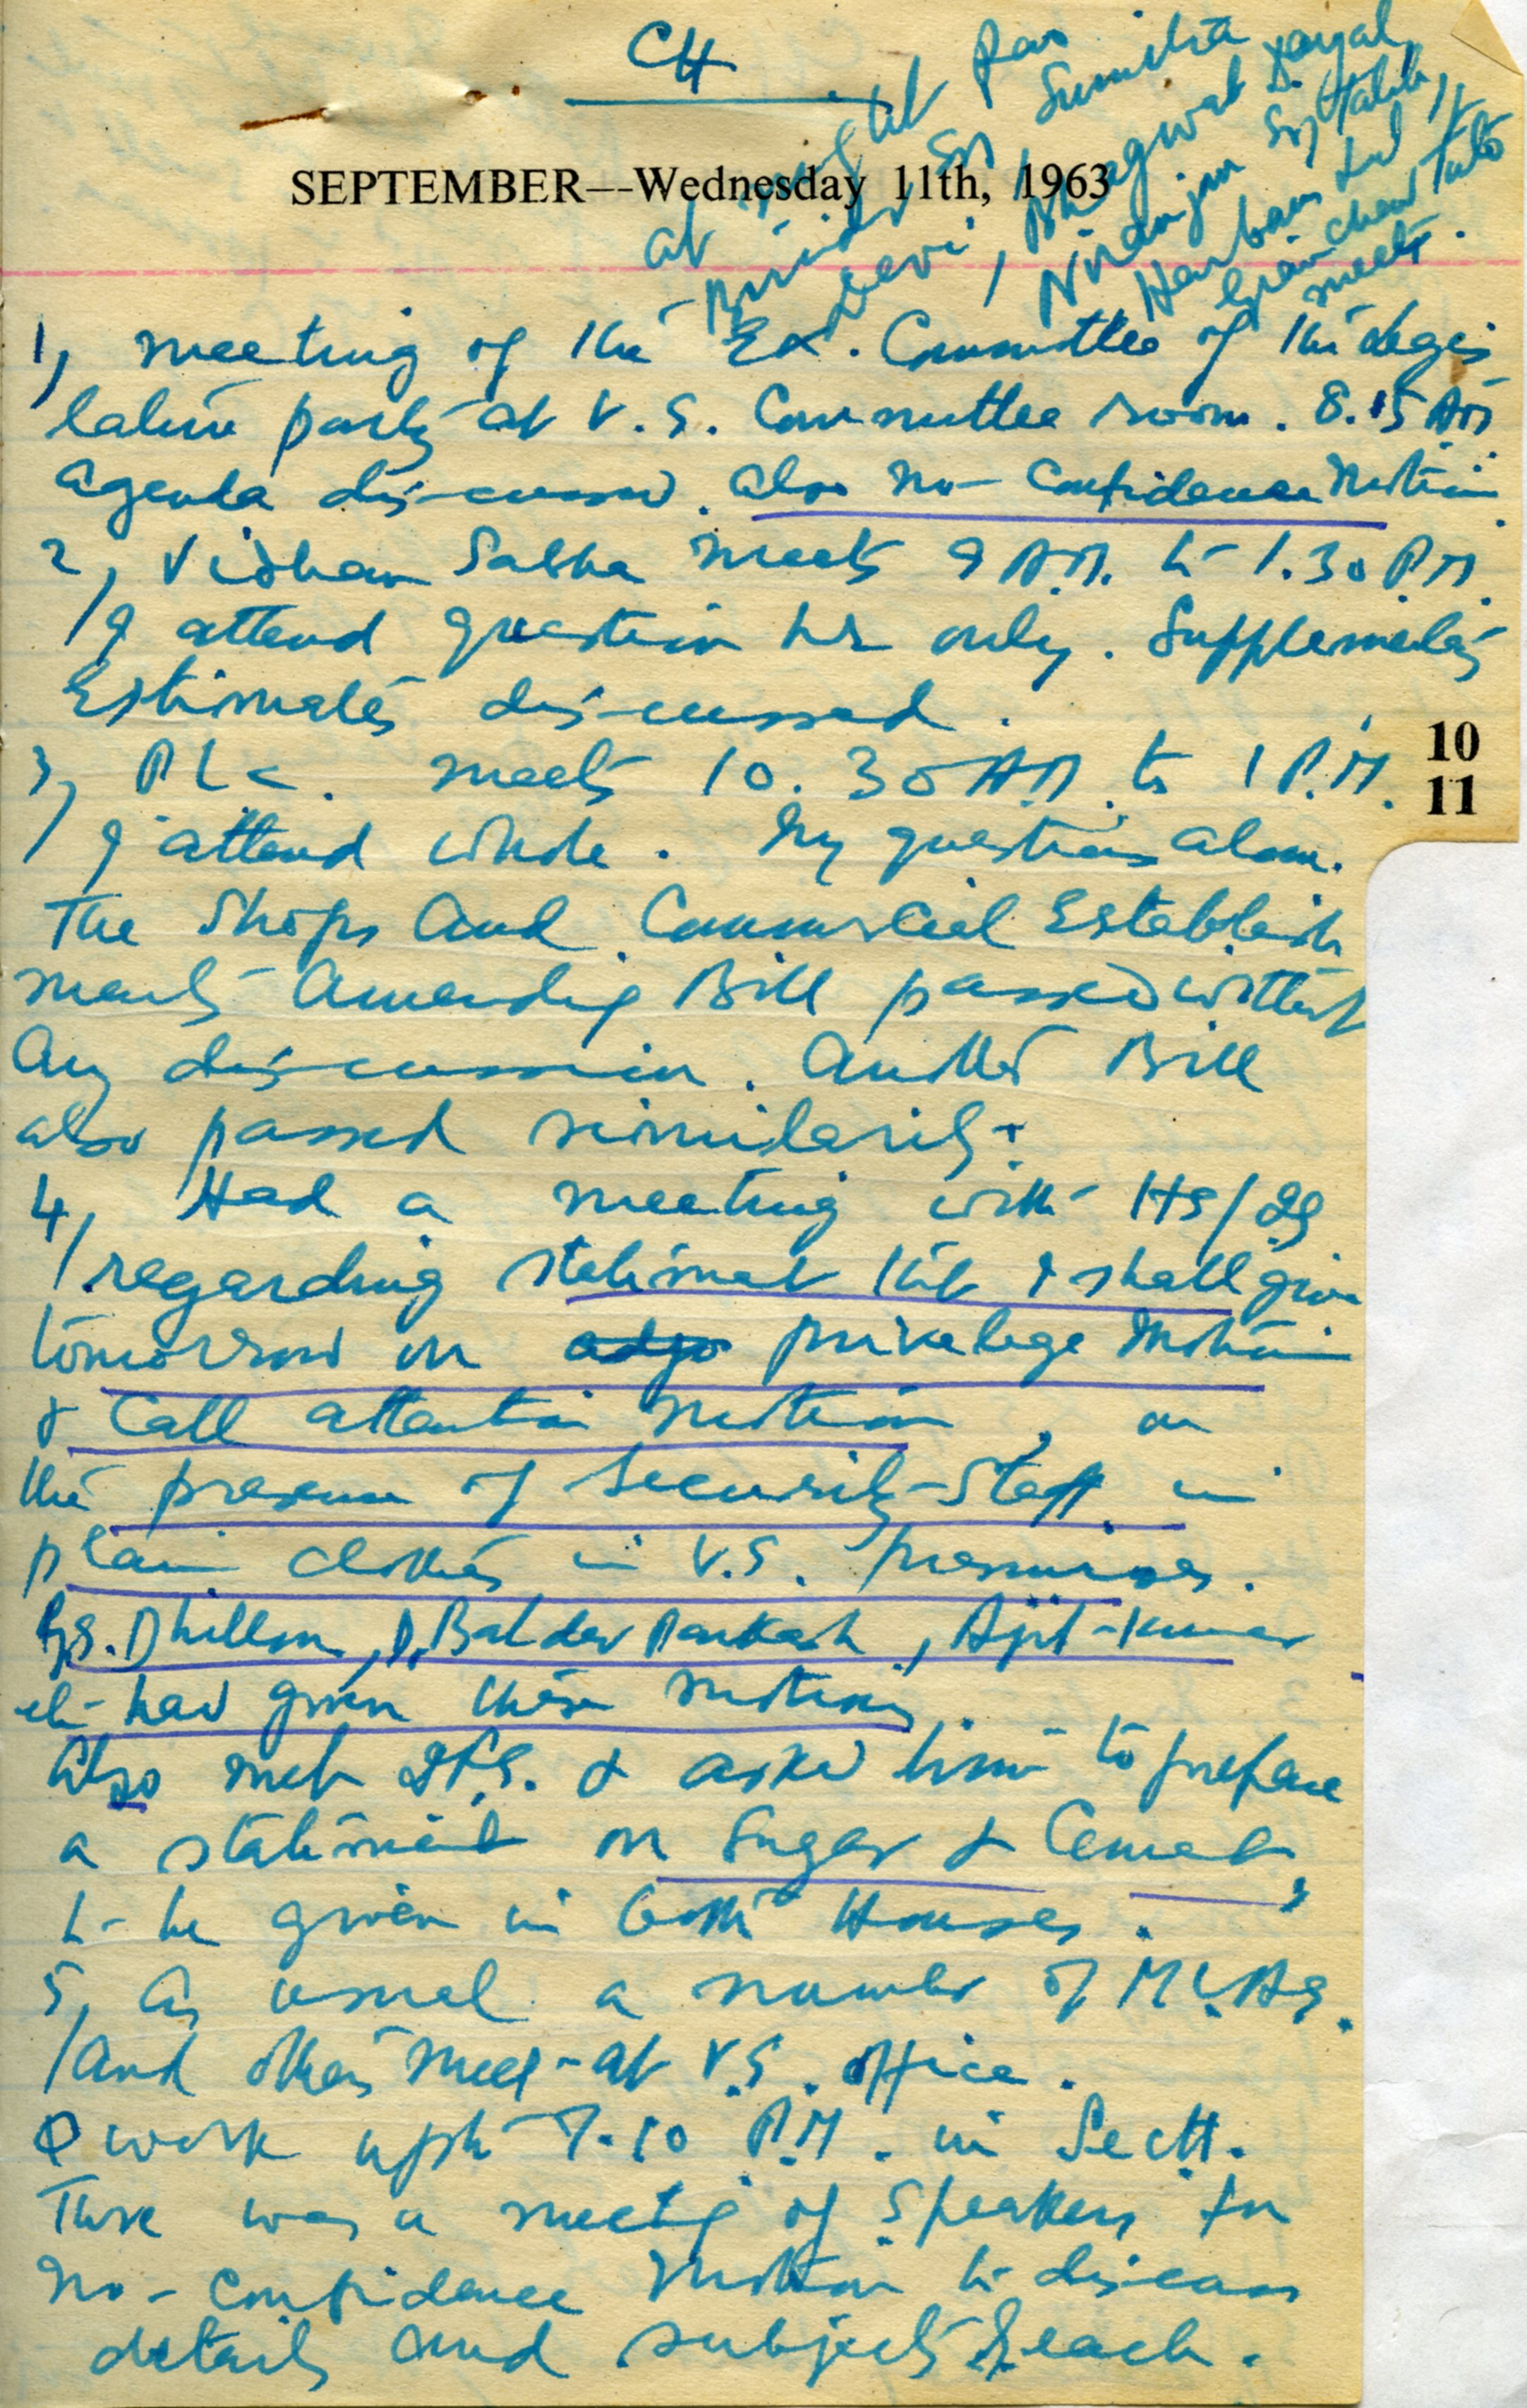 CH
at night Rao
Birinder Sn Sumitra
Devi, Bhagwat Dayal
Niranjan Sn Talib,
Harbans Lal &
Gian Chand Tuto
meets.
SEPTEMBER—Wednesday 11th, 1963
1, meeting of the Ex. Committee of the Legis
lature party at V.S. Committee room. 8.15 AM
Agenda discussed. also no-Confidence Motion.
2, Vidhan Sabha meets 9 A.M. to 1.30 P.M.
I attend question hr only. Supplementary
Estimates discussed.
3, P L C. meets 10.30 A.M. to 1 P.M.
10
11
I attend whole. My questions alone.
The Shops and Commercial Establish
ments Amending Bill passed without
Any discussion. Another Bill
also passed similarily.
4, Had a meeting with HS/
regarding statement that I shall give
tomorrow on adjo privelege Motion
& Call attention motion, on
the presence of Security-Staff in
plain clothes in V.S. premises.
G.S. Dhillon, D. Baldev Parkash, Ajit-Kumar
etc had given these motions.
Also met I.F.S. & asked him to prepare
a statement on Sugar & Cement,
to be given in both Houses.
5, As usual a number of M.L.As.
And others meet-at V.S. office.
work upto 7.10 P.M. in Sectt.
There was a meetg of Speakers for
no-confidence Motion to discuss
details and subjects of each.